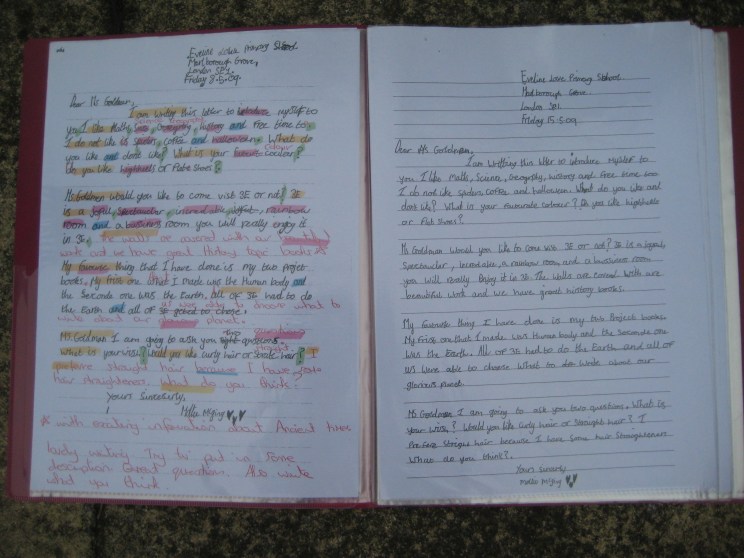 Eveline Lowe Primary School
Marlborough Grove,
London SP1,
Friday 8.5.09.
Dear Ms Goldman,
I am writing this letter to introduce myself to
you I like Maths, Geography, history and free time too
I do not like is spiders, coffee and halloween. What do
you like and dont like? What is your colour?
Do you like highheels or flat shoes?
Ms Goldman would you like to come visit 3E or not? 3E
is a joyful, spectacular, rainbow
room and a business room you will really enjoy it
in 3E. the walls are covered with our
work and we have good History topic books
My favouse thing that I have done is my two projet
books. My frist one what I made was the Human body and
the Seconde one was the Earth. all OF 3E had to do
the Earth and all OF 3E
us were able to choose what to
write about our planet.
Ms. Goldman I am going to ask you questions.
what is your wish? Would you like curly hair or hair? I
hair because I have some
hair straighteners. what do you think?
Yours Sincerely,
with reading information about Ancient times
lovely writing Try to put in some
description Great questions. Also write
what you think.
Eveline Lowe Primary School
Marlborough Grove
London SP1
Friday 15.5.09
Dear Ms Goldman,
I am writting this letter to introduce myself to
you. I like Maths, Science, Geography, history and free time too
I do not like spider, coffee and halloween. What do you like and
dont like? What is your favourate colour? Do you like highheels
or flat shoes?
Ms Goldman Would you like to come visit 3E or not? 3E is a joyful,
Spectacular, a rainbow room and a business room
you will really Enjoy it in 3E. The walls are covered with are
beautiful work and we have great history books.
My favourite thing I have done is my two Project books.
My First one that I made was Human body and the Seconde one
Was the Earth. All OF 3E had to do the Earth and all of
us were able to choose what to do write about our
glorious planet
Ms Goldman I am going to ask you two questions. What is
your wish? Would you like curly hair or straight hair? I
hair because I have some hair straightners.
What do you think?.
Yours Sincerly